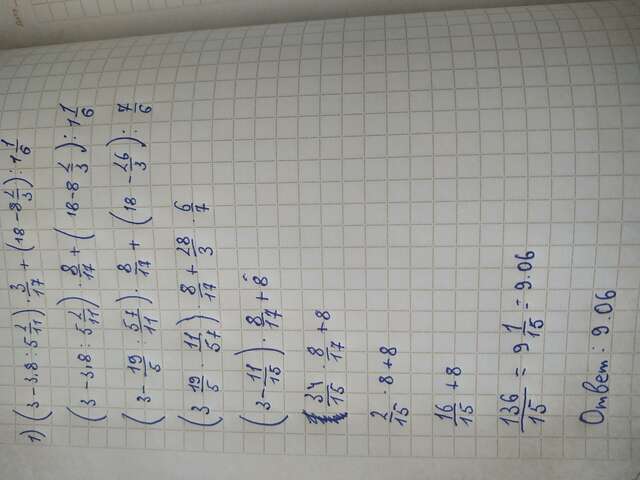 1) (3-3,8:5 2/11)·3/17+(18-8 2/3):1 1/6
(3-3,8:5 2/11)·8/17+(18-8 2/3):1 1/6
(3-19/5:57/11)·8/17+(18-26/3):7/6
(3 19/5·11/57)·8/17+28/3·6/7
(3-11/15)·8/17+8
34/15·8/17+8
2/15·8+8
16/15+8
136/15=9 1/15=9.06
Ответ: 9.06